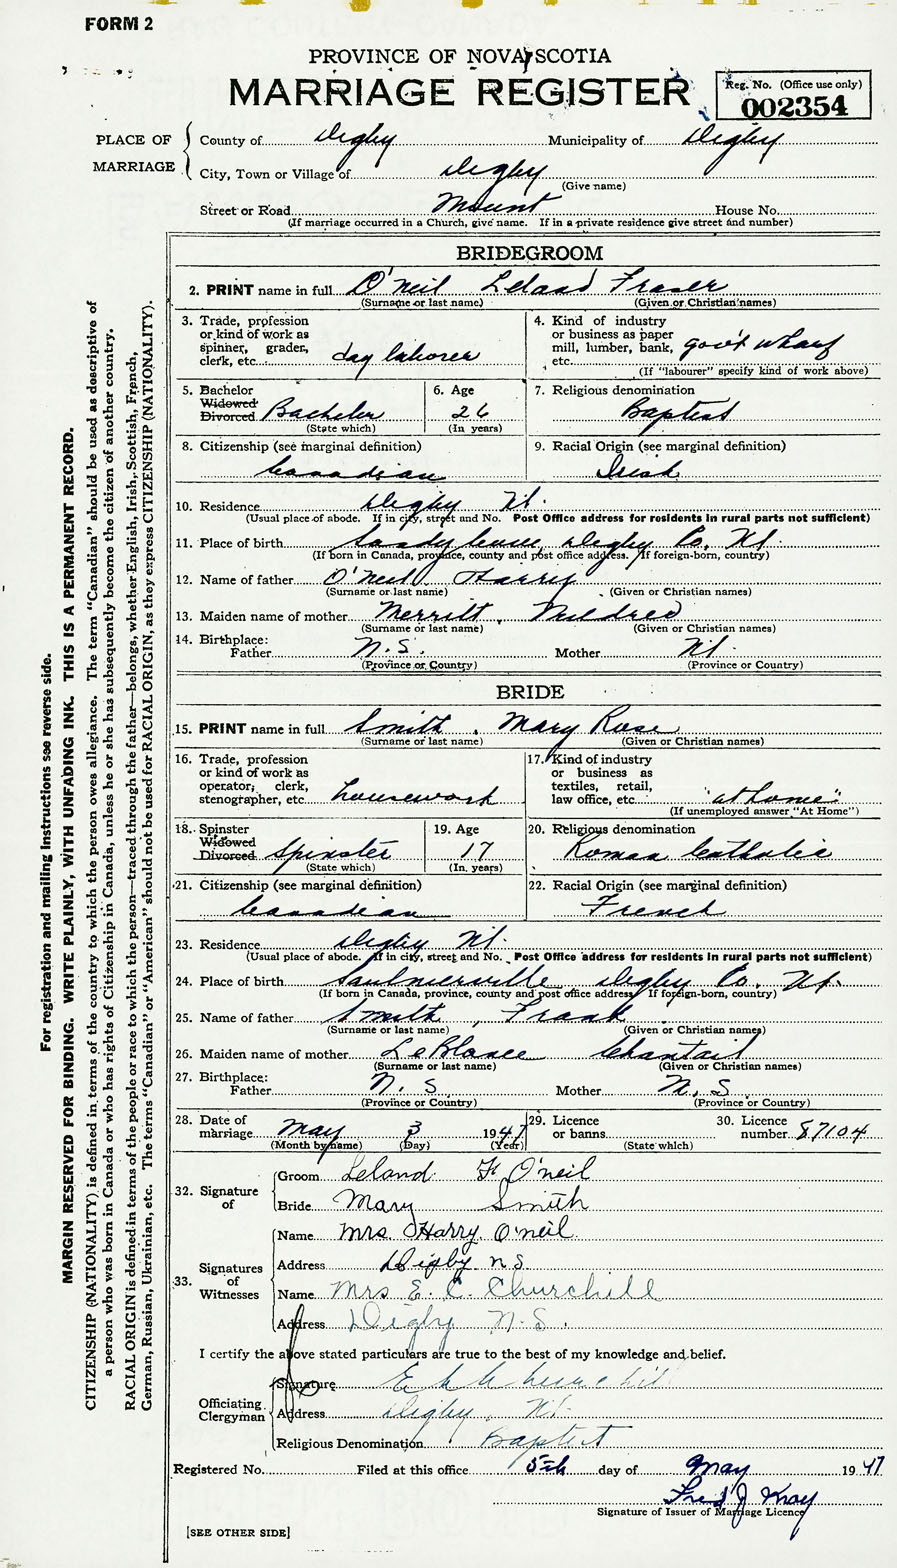 FORM 2
PROVINCE OF NOVA SCOTIA
MARRIAGE REGISTER
Reg. No. (Office use only)
002354
PLACE OF MARRIAGE
County of Digby Municipality of Digby
City, Town or Village of Digby
(Give name)
Street or Road Mount House No.
(If marriage occurred in a Church, give name. If in a private residence give street and number)
BRIDEGROOM
2. PRINT name in full O'Neil Leland Fraser
(Surname or last name) (Given or Christian names)
3. Trade, profession or kind of work as spinner, grader, clerk, etc. day laborer
4. Kind of industry or business as paper mill, lumber, bank, etc. gov't wharf
(If "labourer" specify kind of work above)
5. Bachelor Widowed Divorced Bachelor
(State which)
6. Age 26
(In years)
7. Religious denomination
Baptist
8. Citizenship (see marginal definition)
Canadian
9. Racial Origin (see marginal definition)
Irish
10. Residence Digby NS.
(Usual place of abode. If in city, street and No. Post Office address for residents in rural parts not sufficient)
11. Place of birth Sandy Cove, Digby Co. NS
(If born in Canada, province, county and post office address. If foreign-born, country)
12. Name of father O'Neil Harry
(Surname or last name) (Given or Christian names)
13. Maiden name of mother Merritt, Mildred
(Surname or last name) (Given or Christian names)
14. Birthplace:
Father N.S. Mother NS.
(Province or Country) (Province or Country)
BRIDE
15. PRINT name in full Smith, Mary Rose
(Surname or last name) (Given or Christian names)
16. Trade, profession or kind of work as operator, clerk, stenographer, etc. housework
17. Kind of industry or business as textiles, retail, law office, etc. "at home"
(If unemployed answer "At Home")
18. Spinster Widowed Divorced Spinster
(State which)
19. Age 17
(In years)
20. Religious denomination
Roman Catholic
21. Citizenship (see marginal definition)
Canadian
22. Racial Origin (see marginal definition)
French
23. Residence Digby NS.
(Usual place of abode. If in city, street and No. Post Office address for residents in rural parts not sufficient)
24. Place of birth Saulnierville Digby Co. NS.
(If born in Canada, province, county and post office address. If foreign-born, country)
25. Name of father Smith, Frank
(Surname or last name) (Given or Christian names)
26. Maiden name of mother LeBlance Chantail
(Surname or last name) (Given or Christian names)
27. Birthplace:
Father N.S Mother N.S
(Province or Country) (Province or Country)
28. Date of marriage May 3 1947
(Month by name) (Day) (Year)
29. Licence or banns
(State which)
30. Licence number 87104
32. Signature of
Groom Leland F. O'neil
Bride Mary Smith
33. Signatures of Witnesses
Name Mrs. Harry. O'neil
Address Digby n s
Name Mrs E. C. Churchill
Address Digby N.S.
I certify the above stated particulars are true to the best of my knowledge and belief.
Officiating Clergyman
Signature Churchill
Address Digby, NS.
Religious Denomination Baptist
Registered No. Filed at this office 5th day of May 1947
Fred J
Signature of Issuer of Marriage Licence
[SEE OTHER SIDE]
For registration and mailing instructions see reverse side.
MARGIN RESERVED FOR BINDING. WRITE PLAINLY, WITH UNFADING INK. THIS IS A PERMANENT RECORD.
CITIZENSHIP (NATIONALITY) is defined in terms of the country to which the person owes allegiance. The term "Canadian" should be used as descriptive of
a person who was born in Canada or who has rights of Citizenship in Canada, unless he or she has subsequently become the citizen of another country.
RACIAL ORIGIN is defined in terms of the people or race to which the person—traced through the father—belongs, whether English, Irish, Scottish, French,
German, Russian, Ukrainian, etc. The terms "Canadian" or "American" should not be used for RACIAL ORIGIN, as they express CITIZENSHIP (NATIONALITY).